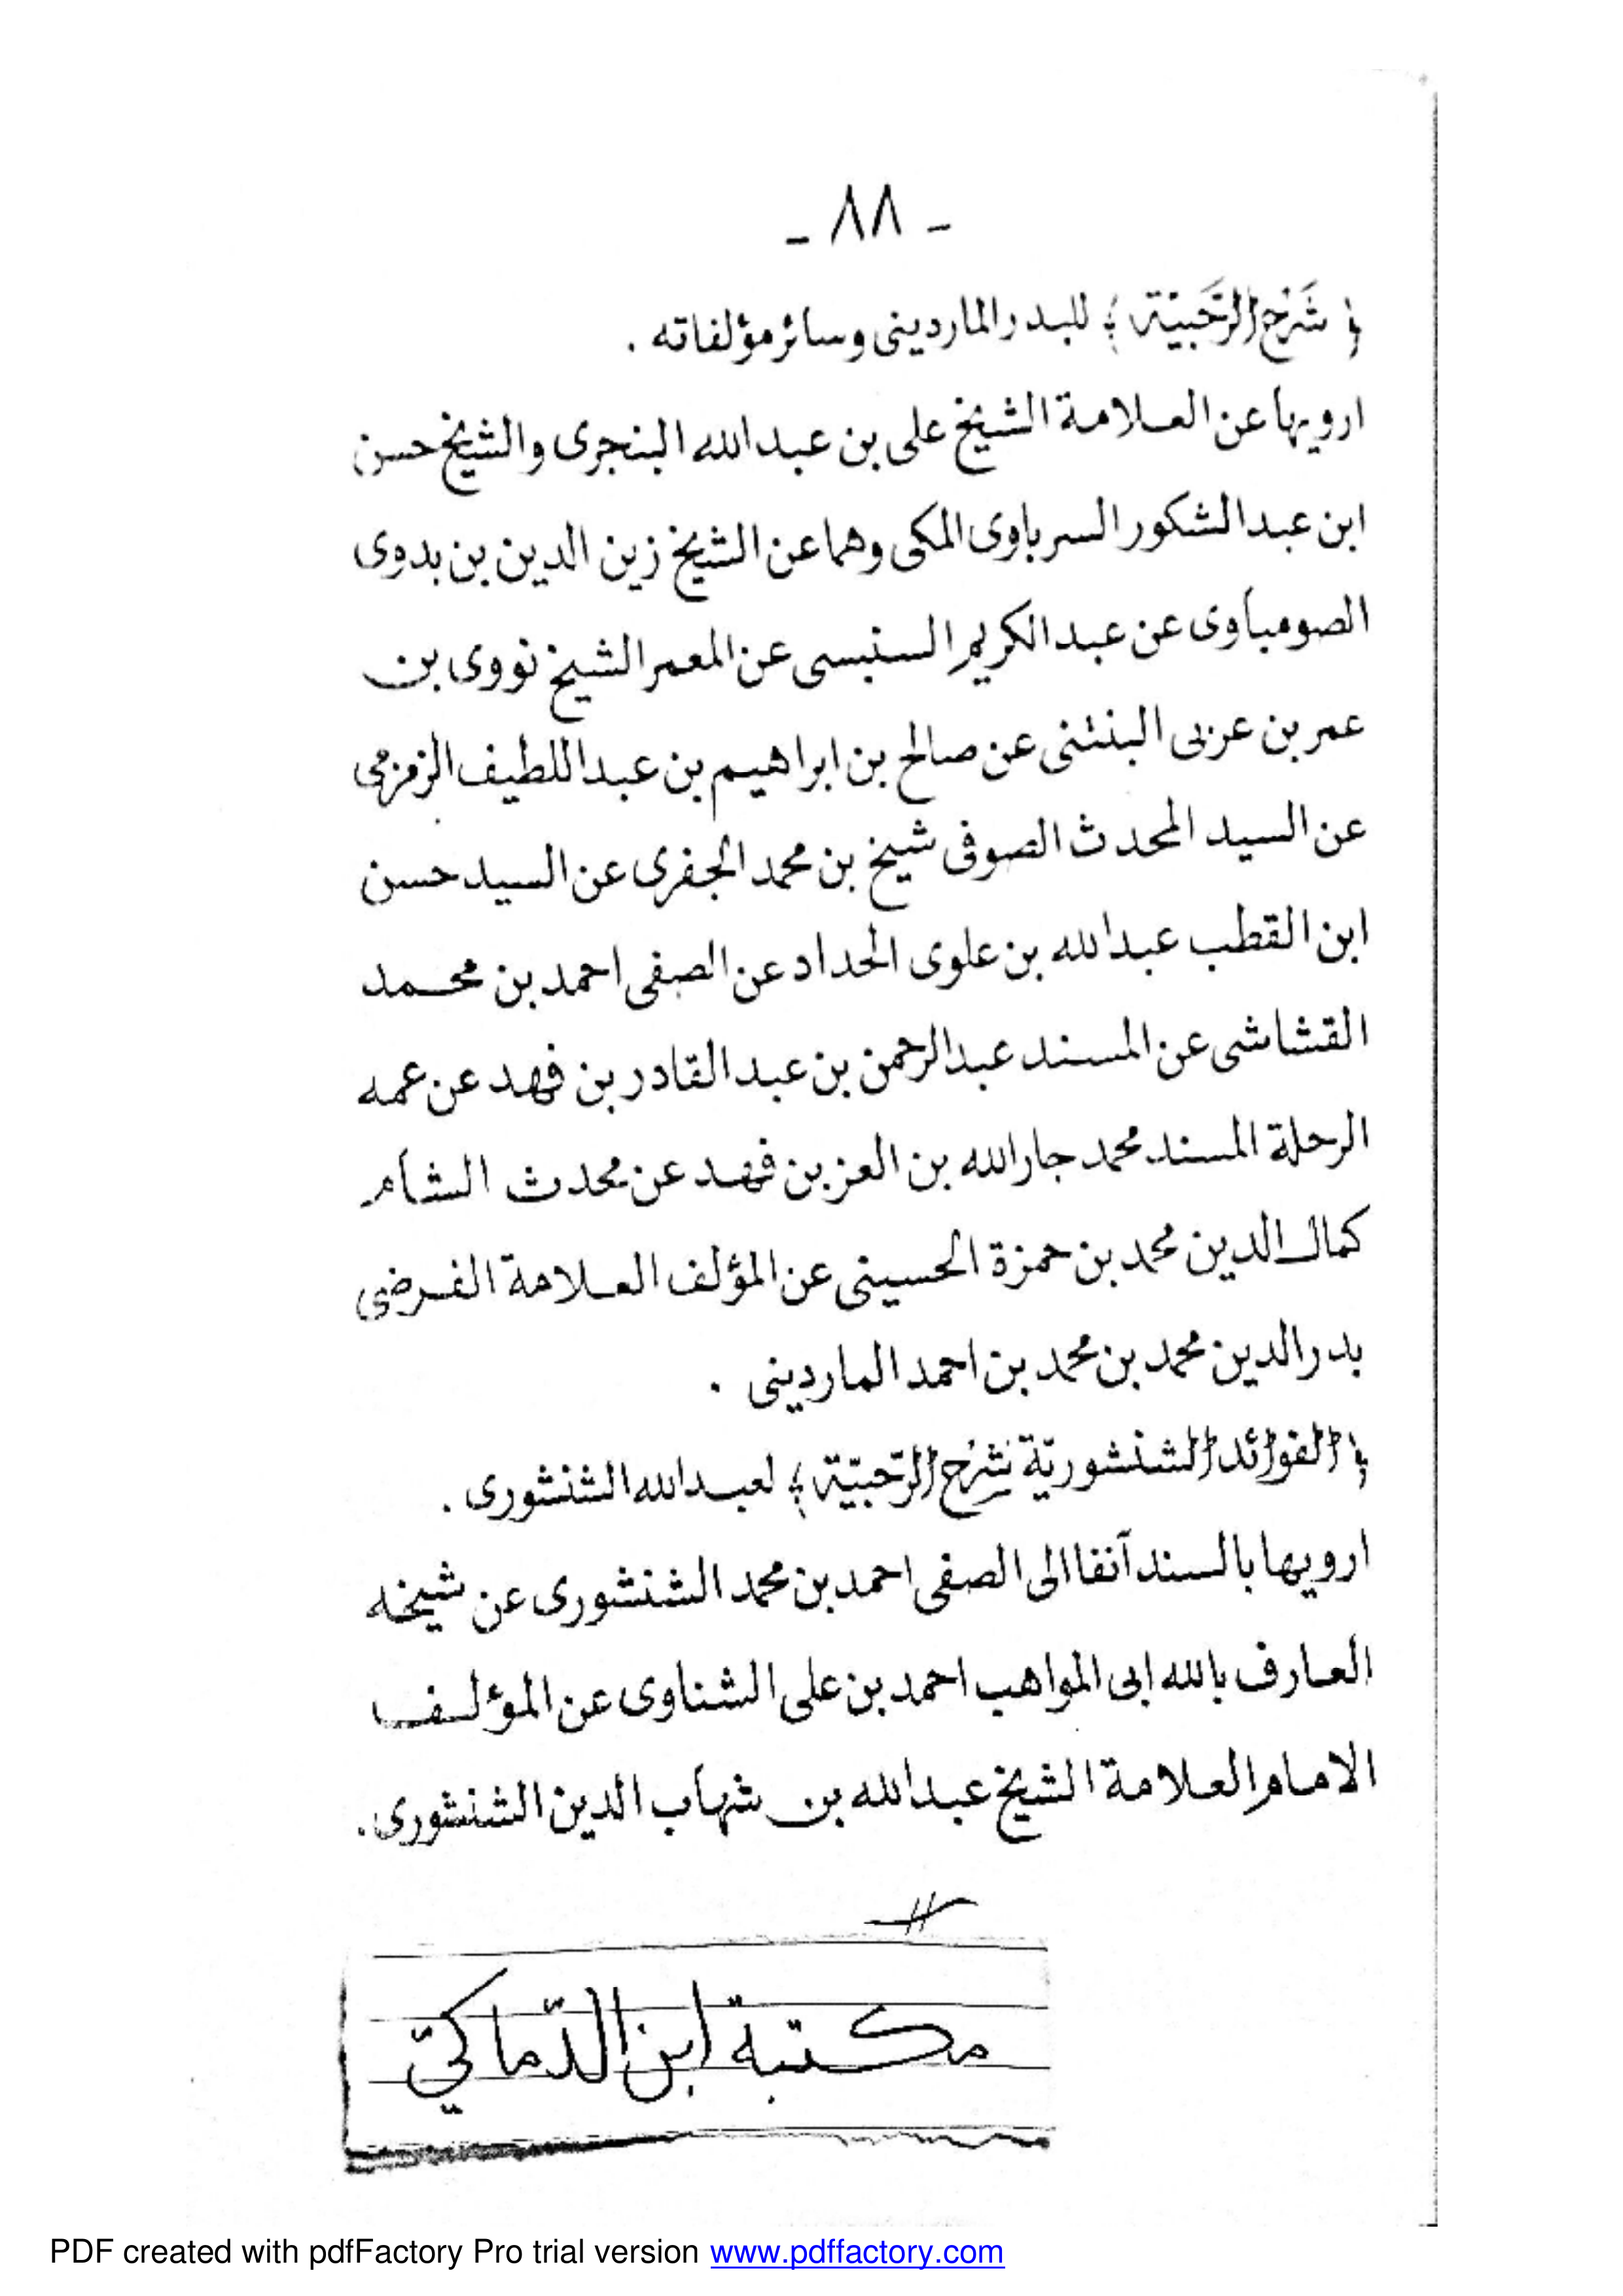 - ٨٨ -
﴿ شَرْح الرَّحَبيّة ﴾ للبدر الماردينى وسائر مؤلفاته .
ارويها عن العلامة الشيخ على بن عبد الله البنجرى والشيخ حسن
ابن عبد الشكور السرباوى المكى وهما عن الشيخ زين الدين بن بدوى
الصومباوى عن عبد الكريم السنبسى عن المعمر الشيخ نووى بن
عمر بن عربى البنتنى عن صالح بن ابراهيم بن عبد اللطيف الزمزمى
عن السيد المحدث الصوفى شيخ بن محمد الجفرى عن السيد حسن
ابن القطب عبد الله بن علوى الحداد عن الصفى احمد بن محمد
القشاشى عن المسند عبد الرحمن بن عبد القادر بن فهد عن عمه
الرحلة المسند محمد جار الله بن العز بن فهد عن محدث الشام
كمال الدين محمد بن حمزة الحسينى عن المؤلف العلامة الفرضى
بدر الدين محمد بن محمد بن احمد الماردينى .
﴿ الفوائد الشنشوريّة شَرْح الرّحبيّة ﴾ لعبد الله الشنشورى .
ارويها بالسند آنفا الى الصفى احمد بن محمد الشنشورى عن شيخه
العارف بالله ابى المواهب احمد بن على الشناوى عن المؤلف
الامام العلامة الشيخ عبد الله بن شهاب الدين الشنشورى .
مكتبة ابن الدّماكيّ
PDF created with pdfFactory Pro trial version www.pdffactory.com